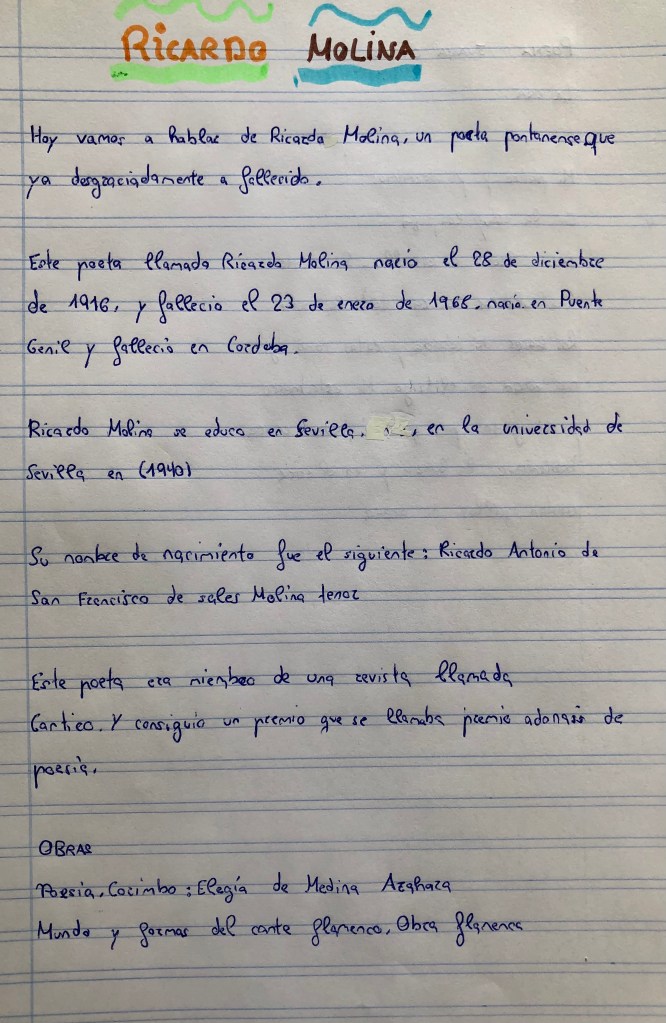 RICARDO MOLINA
Hoy vamos a hablar de Ricardo Molina, un poeta pontanense que
ya desgraciadamente a fallecido.
Este poeta llamado Ricardo Molina nació el 28 de diciembre
de 1916, y fallecio el 23 de enero de 1968. nació en Puente
Genil y falleciò en Cordoba.
Ricardo Molina se educo en Sevilla. , en la universidad de
Sevilla en (1940)
Su nombre de nacimiento fue el siguiente: Ricardo Antonio de
San Francisco de sales Molina tenor
Este poeta era miembro de una revista llamada
Cantico. Y consiguio un premio que se llamaba premio adonais de
poesia.
OBRAS
Poesia, Corimbo: Elegía de Medina Azahara
Mundo y formas del cante flamenco, Obra flamenca